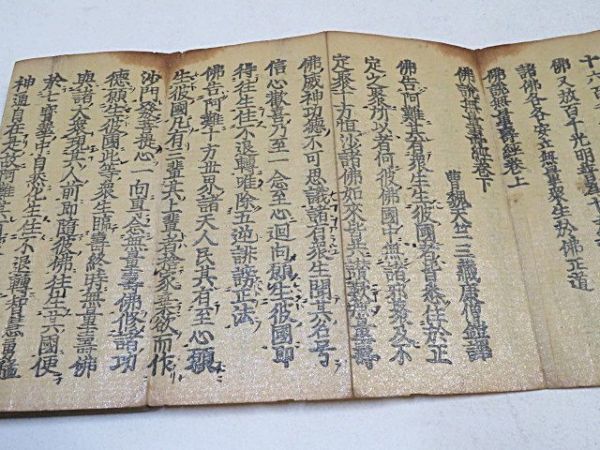 十六百千
佛又放百千光明普
諸佛各各安立無量衆生於佛正道
佛説無量壽經卷上
佛説無量壽經卷下
曹魏天竺三藏康僧鎧譯
佛告阿難其有衆生生彼國者皆悉住於正
定之聚所以者何彼佛國中無諸邪聚及不
定聚十方恒沙諸佛如來皆共讃歎無量壽
佛威神功德不可思議諸有衆生聞其名号
信心歡喜乃至一念至心迴向願生彼國即
得往生住不退轉唯除五逆誹謗正法
佛告阿難十方世界諸天人民其有至心願
生彼國凡有三輩其上輩者捨家棄欲而作
沙門發菩提心一向專念無量壽佛修諸功
德願生彼國此等衆生臨壽終時無量壽佛
與諸大衆現其人前即隨彼佛往生其國便
於七寶華中自然化生住不退轉智慧勇猛
神通自在是故阿難